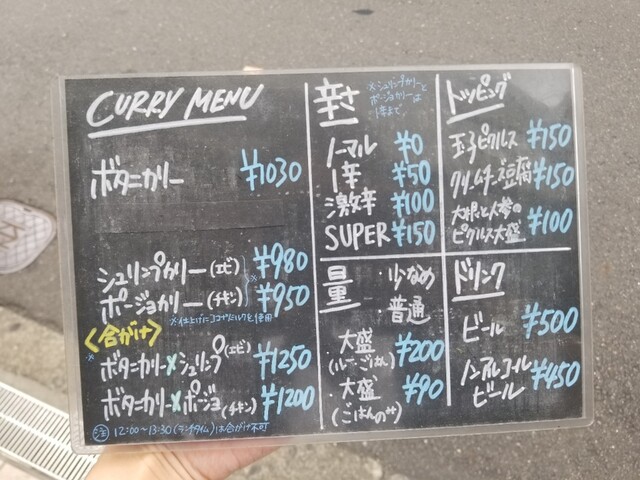 CURRY MENU
ボタニカリー ¥1030
シュリンプカリー(エビ) ¥980
ポージョカリー(チキン) ¥950
※仕上げにココナツミルクを使用
<合がけ>
※
ボタニカリー×シュリンプ(エビ) ¥1250
ボタニカリー×ポージョ(チキン) ¥1200
注 12:00~13:30(ランチタイム)は合がけ不可
辛さ
※シュリンプカリーと
ポージョカリーは
1辛まで。
ノーマル ¥0
1辛 ¥50
激辛 ¥100
SUPER ¥150
量
・少なめ
・普通
・大盛 ¥200
(ルー・ごはん)
・大盛 ¥90
(ごはんのみ)
トッピング
玉子ピクルス ¥150
クリームチーズ豆腐 ¥150
大根と人参の
ピクルス大盛 ¥100
ドリンク
ビール ¥500
ノンアルコール
ビール ¥450